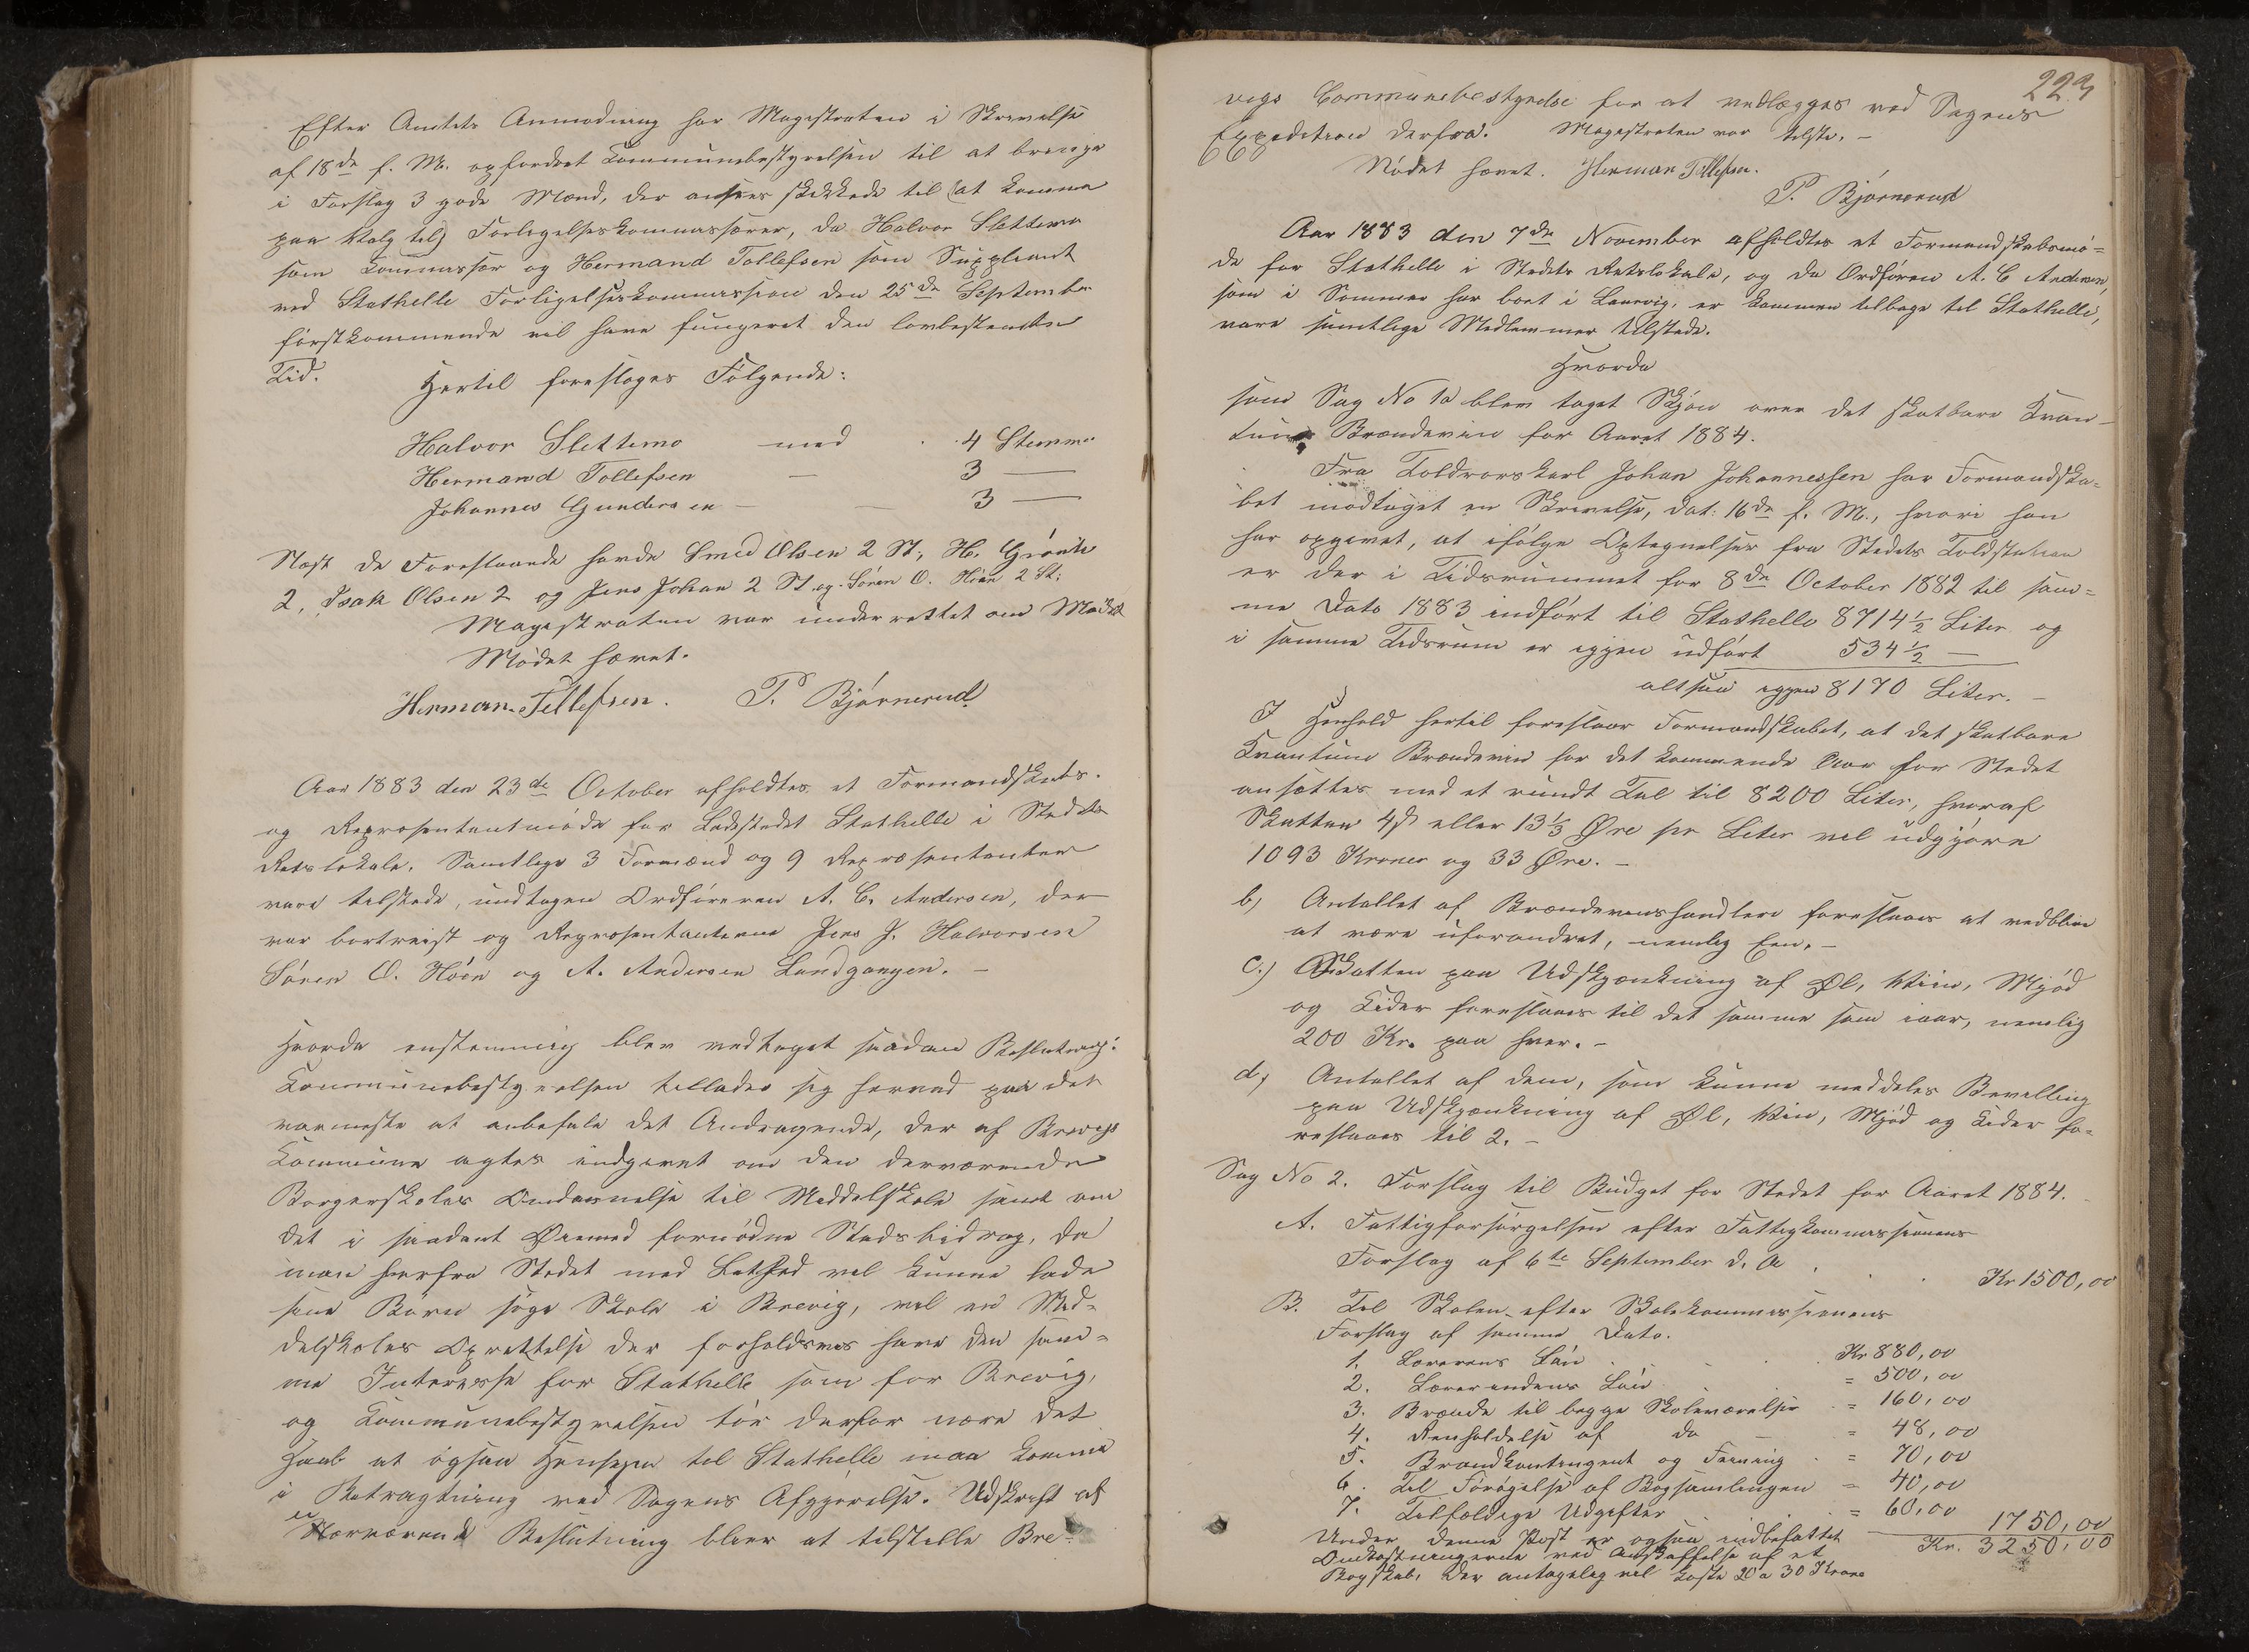 Efter Amtets Anmodning har Magistraten i Skrivelse
af 18de f. M. opfordret Kommunebestyrelsen til at bringe
i Forslag 3 gode Mænd, der ansees skikkede til (at komme
paa Valg til) Forligelseskommissærer, da Halvor Slettemo
som Kommissær og Hermand Tollefsen som Suppleant
ved Stathelle Forligelseskommission den 25de September
førstkommende vil have fungeret den lovbestemte
Tid.
Hertil foresloges Følgende:
Halvor Slettemo med 4 Stemmer
Hermand Tollefsen — 3 —
Johannes Gundersen — 3 —
Næst de Foreslaaede havde Smed Olsen 2 St, H. Grønli
2, Isak Olsen 2 og Jens Johan 2 St. og Søren O. Høen 2 St:
Magistraten var underrettet om Mødet
Mødet hævet.
Herman Tollefsen. P. Bjørnerud
Aar 1883 den 23de October afholdtes et Formandskabs-
og Repræsentantmøde for Ladestedet Stathelle i Stedets
Retslokale. Samtlige 3 Formænd og 9 Repræsentanter
vare tilstede, undtagen Ordføreren A. C. Andersen, der
var bortreist og Repræsentanterne Jens J. Halvorsen
Søren O. Høen og A. Andersen Landgangen. —
Hvorda enstemmig blev vedtaget saadan Beslutning:
Kommunebestyrelsen tillader sig herved paa det
varmeste at anbefale det Andragende, der af Brevigs
Kommune agtes indgivet om den derværende
Borgerskoles Omdannelse til Middelskole samt om
det i saadant Øiemed fornødne Statsbidrag, da
man herfra Stedet med Lethed vil kunne lade
sine Børn søge Skole i Brevig, vil en Mid-
delskoles Oprettelse der forholdsvis have den sam-
me Interesse for Stathelle som for Brevig,
og Kommunebestyrelsen tør derfor nære det
Haab at ogsaa Hensyn til Stathelle maa komme
i Betragtning ved Sagens Afgjørelse. Udskrift af
Nærværende Beslutning bliver at tilstille Bre-
223
vigs Communebestyrelse for at vedlægges ved Sagens
Expedition derfra. Magistraten var tilste. —
Mødet hævet. Herman Tollefsen.
P. Bjørnerud
Aar 1883 den 7de November afholdtes et Formandskabsmø-
de for Stathelle i Stedets Retslokale, og da Ordføren A. C Andersen,
som i Sommer har boet i Laurvig, er kommen tilbage til Stathelle,
vare samtlige Medlemmer tilstede.
Hvorda
som Sag No 1a blev taget Skjøn over det skatbare Kvan-
tum Brændeviin for Aaret 1884.
Fra Toldroerskarl Johan Johannessen har Formandska-
bet modtaget en Skrivelse, dat: 16de f. M., hvori han
har opgivet, at ifølge Optegnelser fra Stedets Toldstation
er der i Tidsrummet for 8de October 1882 til sam-
me Dato 1883 indført til Stathelle 8714½ Liter og
i samme Tidsrum er igjen udført 534½ —
altsaa igjen 8170 Liter. —
I Henhold hertil foreslaar Formandskabet, at det skatbare
Kvantum Brændeviin for det kommende Aar for Stedet
ansættes med et rundt Tal til 8200 Liter, hvoraf
Skatten 4ß eller 13⅓ Øre pr Liter vil udgjøre
1093 Kroner og 33 Øre. —
b) Antallet af Brændevinshandlere foreslaaes at vedblive
at være uforandret, nemlig Een. —
c.) Skatten paa Udskjænkning af Øl, Viin, Mjød
og Cider foreslaaes til det samme som iaar, nemlig
200 Kr. paa hver. —
d) Antallet af dem, som kunne meddeles Bevilling
paa Udskjænkning af Øl, Vin, Mjød og Cider fo-
reslaaes til 2. —
Sag No 2. Forslag til Budget for Stedet for Aaret 1884.
A. Fattigforsørgelsen efter Fattigkommissionens
Forslag af 6te September d. A . . . Kr 1500,00
B. Til Skolen efter Skolekommissionens
Forslag af samme Dato.
1. Lærerens Løn . . . Kr 880,00
2. Lærerindens Løn = 500,00
3. Brænde til begge Skoleværelser = 160,00
4. Renholdelse af do = 48,00
5. Brandkontingent og Feining = 70,00
6. Til Forøgelse af Bogsamlingen = 40,00
7. Tilfældige Udgifter = 60,00 1750,00
Under denne Post er ogsaa indbefattet Kr. 3250,00
Omkostningerne ved Anskaffelse af et
Bogskab, der antagelig vil koste 20 a 30 Kroner